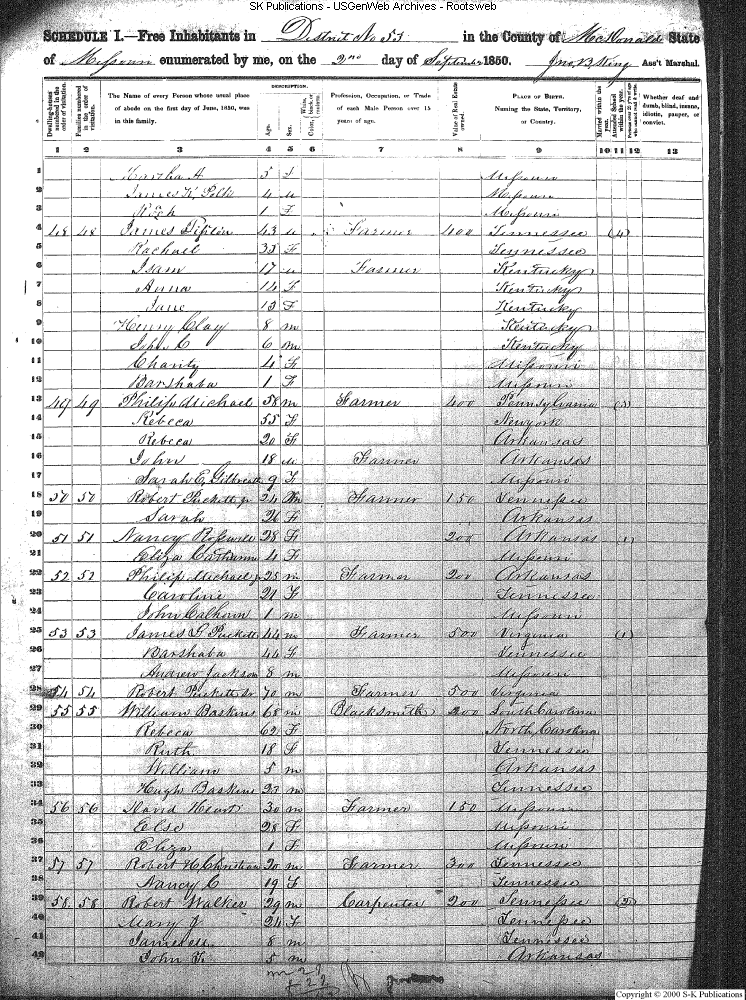 SK Publications - USGenWeb Archives - Rootsweb
SCHEDULE I.—Free Inhabitants in District No 51 in the County of McDonald State
of Missouri enumerated by me, on the 2nd day of September 1850. Ass't Marshal.
Dwelling-houses numbered in the order of visitation.
Families numbered in the order of visitation.
The Name of every Person whose usual place of abode on the first day of June, 1850, was in this family.
DESCRIPTION.
Age.
Sex.
Color, White, black, or mulatto.
Profession, Occupation, or Trade of each Male Person over 15 years of age.
Value of Real Estate owned.
PLACE OF BIRTH. Naming the State, Territory, or Country.
Married within the year.
Attended School within the year.
Persons over 20 y'rs of age who cannot read & write.
Whether deaf and dumb, blind, insane, idiotic, pauper, or convict.
1 2 3 4 5 6 7 8 9 10 11 12 13
1 Martha A 5 F Missouri
2 James K Polk 4 M Missouri
3 1 F Missouri
4 48 48 James 43 M Farmer 400 Tennessee (4)
5 Rachael F Tennessee
6 Isam 17 M Farmer Kentucky
7 Anna 14 F Kentucky
8 Jane 13 F Kentucky
9 Henry Clay 8 m Kentucky
10 John C 6 m Kentucky
11 Charity 4 F Missouri
12 Barshaba 1 F Missouri
13 49 49 Philip Michael 58 m Farmer 400 Pennsylvania
14 Rebeca 55 F Newyork
15 Rebeca 20 F Arkansas
16 John 18 M Farmer Arkansas
17 Sarah E Gilbreath 9 F Missouri
18 50 50 Robert Puckett jr 24 m Farmer 150 Tennessee
19 Sarah 26 F Arkansas
20 51 51 Nancy 28 F 200 Arkansas
21 Eliza Catharine 4 F Missouri
22 52 52 Philip Michael jr 25 m Farmer 200 Arkansas
23 Caroline 21 F Tennessee
24 John Calhoun 1 m Missouri
25 53 53 James S Puckett 44 m Farmer 500 Virginia (1)
26 Barshaba 44 F Tennessee
27 Andrew Jackson 8 m Missouri
28 54 54 Robert Puckett Sr 70 m Farmer 500 Virginia
29 55 55 William Baskins 68 m Blacksmith 200 South Carolina
30 Rebeca 62 F North Carolina
31 Ruth 18 F Tennessee
32 William 5 m Arkansas
33 Hugh Baskins 23 m Tennessee
34 56 56 David 30 m Farmer 150 Missouri
35 Else 28 F Missouri
36 Eliza 1 F Missouri
37 57 57 Robert H Christian 20 m Farmer 300 Tennessee
38 Nancy C 19 F Tennessee
39 58 58 Robert Walker 29 m Carpenter 200 Tennessee (2)
40 Mary J 24 F Tennessee
41 8 m Tennessee
42 John 5 m Arkansas
Copyright © 2000 S-K Publications